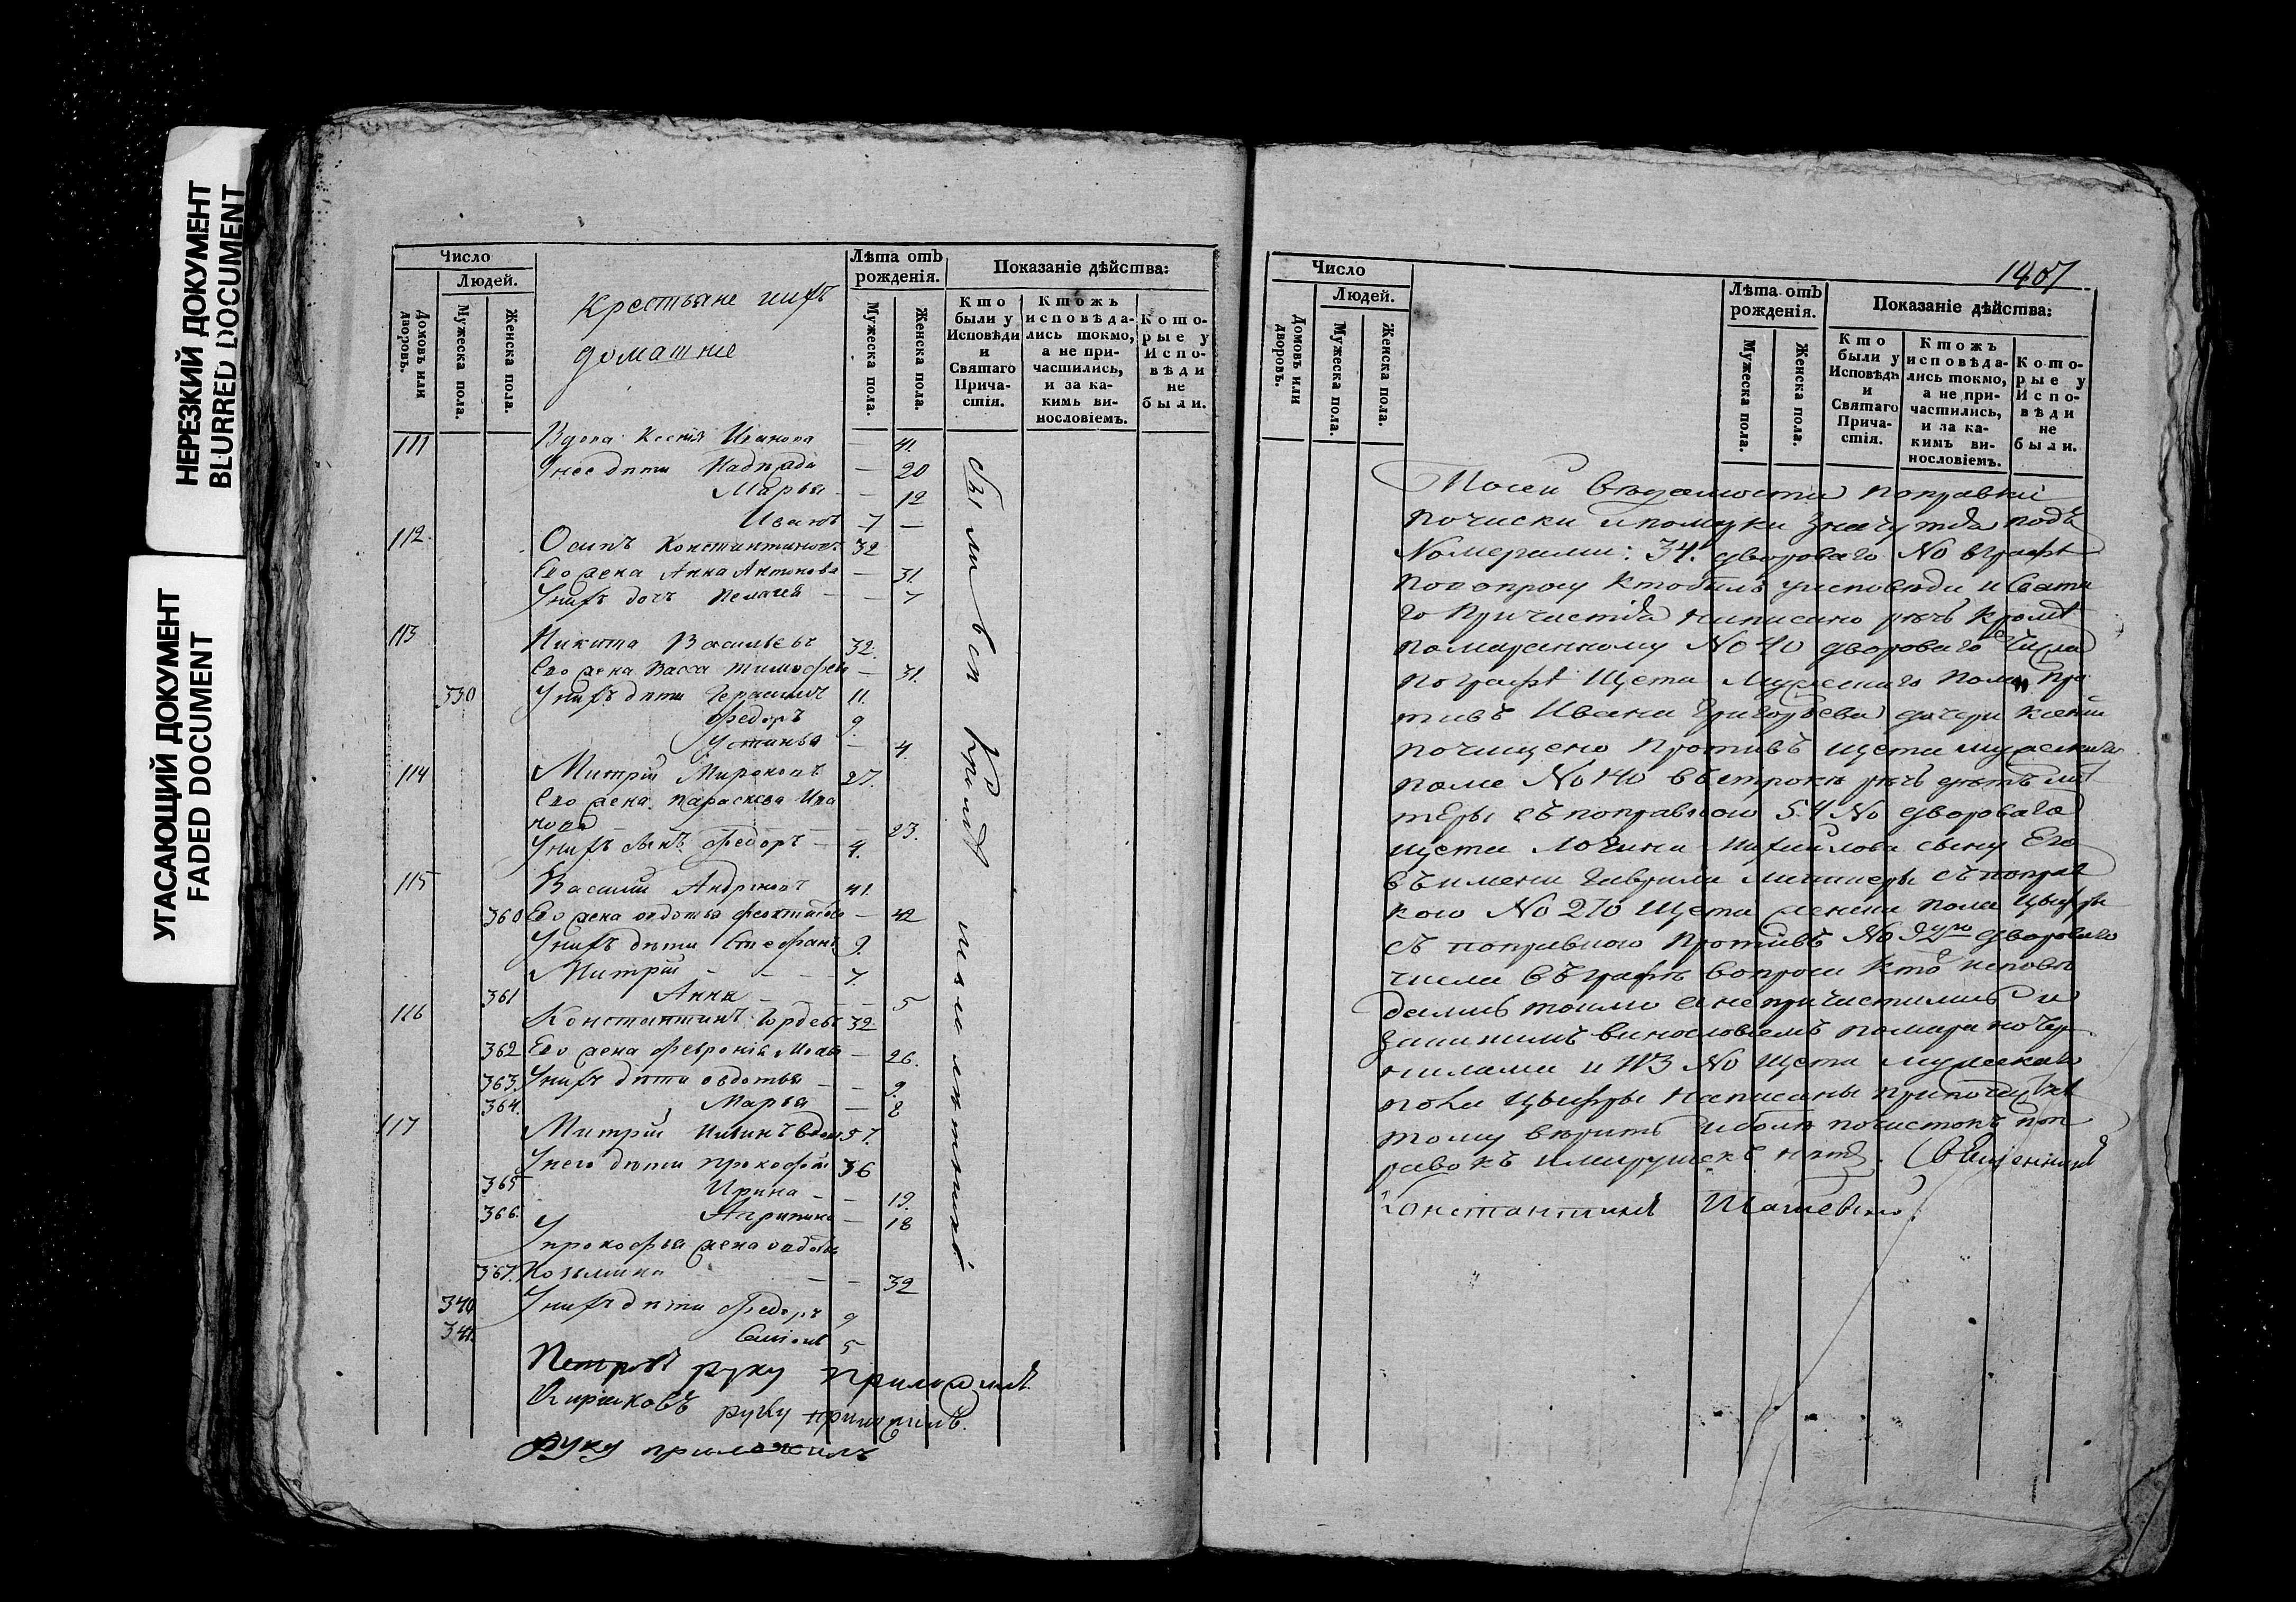 НЕРЕЗКИЙ ДОКУМЕНТ
BLURRED DOCUMENT
УГАСАЮЩИЙ ДОКУМЕНТ
FADED DOCUMENT
Число
Людей.
Домовъ или дворовъ.
Мужеска пола.
Женска пола.
Крестьяне ихъ
домашние
Лѣта отъ рожденія.
Мужеска пола.
Женска пола.
Показаніе дѣйства:
Кто были у Исповѣди и Святаго Причастія.
Ктожъ исповѣдались токмо, а не причастились, и за какимъ винословіемъ.
Которые у Исповѣди не были.
111 Вдова Ксенія Иванова — 41.
У нее дѣти Надежда — 20
Марья — 12
Иванъ 7 —
112 Осипъ Константиновъ 32
Его жена Анна Антонова — 31.
У нихъ дочь Пелагея — 7
113 Никита Васильевъ 32.
Его жена Васса Тимофѣева — 31.
330 У нихъ дѣти Герасимъ 11.
Федоръ 9.
Устинья — 4.
114 Митрій Мироновъ 27.
Его жена Параскева Ива
нова — 23.
У нихъ сынъ Федоръ — 4.
115 Василій Андреевъ 41.
360 Его жена Авдотья — 42
У нихъ дѣти Стефанъ 9.
Митрій 7.
361 Анна — 5
116 Константинъ Гордѣевъ 32.
362 Его жена Февронія — 26.
363. У нихъ дѣти Авдотья — 9.
364. Марья — 8
117 Митрій вдовъ 57.
У него дѣти Прокофей 36
365 Ирина — 19.
366. Агрипина — 18
У Прокофья жена Авдотья
367. Козьмина — 32
340 У нихъ дѣти Федоръ 9
341. Симіонъ 5
были всѣ кромѣ малолѣтныхъ
Петровъ руку приложилъ.
руку приложилъ.
руку приложилъ
1407
Число
Людей.
Домовъ или дворовъ.
Мужеска пола.
Женска пола.
Лѣта отъ рожденія.
Мужеска пола.
Женска пола.
Показаніе дѣйства:
Кто были у Исповѣди и Святаго Причастія.
Ктожъ исповѣдались токмо, а не причастились, и за какимъ винословіемъ.
Которые у Исповѣди не были.
По сей вѣдомости поправки
почиски и помарки значутся подъ
Номерами: 34. двороваго No в графѣ
по вопросу кто былъ у исповѣди и Свята
го Причастія написано рѣчь кромѣ
по маранному No 40 двороваго числа
по графѣ щета мужескаго пола про
тивъ Ивана Григорьева дочери Ксении
почищено противъ щета мужескаго
пола No 140 въ строкѣ рѣчь дѣтъ ли
теры съ поправкою 54 No двороваго
щета Логина Михайлова сыну Его
въ имени Гаврила литеры съ поправ
кою No 270 щета женска пола цыфры
съ поправкою противъ No 92го двороваго
числа въ графѣ вопроса кто исповѣ
дались токмо а не причастились и
за какимъ винословіемъ помарано чер
нилами и 113 No щета мужескаго
пола цыфры написаны по почищенѣ
тому вѣрить и болѣ почистокъ поп
равокъ и марушекъ нѣтъ. Священникъ
Константинъ